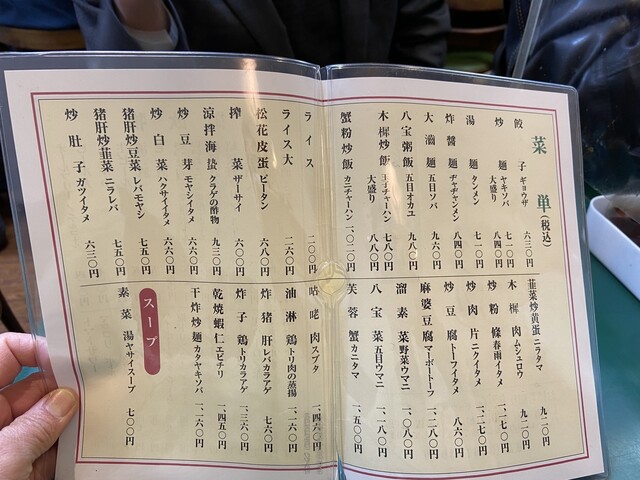 菜単(税込)
餃子 ギョウザ 六三〇円
炒麺 ヤキソバ 七一〇円
大盛り 八四〇円
湯麺 タンメン 七一〇円
炸醤麺 ヂャヂャンメン 八四〇円
大滷麺 五目ソバ 九八〇円
八宝粥飯 五目オカユ 九八〇円
木樨炒飯 玉子チャーハン 七八〇円
大盛り 八八〇円
蟹粉炒飯 カニチャーハン 一、〇二〇円
韮菜炒黄蛋 ニラタマ 九二〇円
木樨肉 ムシュロウ 九二〇円
炒粉條 春雨イタメ 一、一七〇円
炒肉片 ニクイタメ 一、二七〇円
炒豆腐 トーフイタメ 八六〇円
麻婆豆腐 マーボートーフ 一、二八〇円
溜素菜 野菜ウマニ 一、〇八〇円
八宝菜 五目ウマニ 一、一八〇円
芙蓉蟹 カニタマ 一、五〇〇円
ライス 二〇〇円
ライス大 二六〇円
松花皮蛋 ピータン 六八〇円
搾菜 ザーサイ 六〇〇円
涼拌海蜇 クラゲの酢物 九三〇円
炒豆芽 モヤシイタメ 六六〇円
炒白菜 ハクサイイタメ 六六〇円
猪肝炒豆菜 レバモヤシ 七五〇円
猪肝炒韮菜 ニラレバ 七五〇円
炒肚子 ガツイタメ 六三〇円
咕咾肉 スブタ 一、四六〇円
油淋鶏 トリ肉の蒸揚 一、二六〇円
炸猪肝 レバカラアゲ 七六〇円
炸子鶏 トリカラアゲ 一、三六〇円
乾焼蝦仁 エビチリ 一、四五〇円
干炸炒麺 カタヤキソバ 一、一六〇円
スープ
素菜湯 ヤサイスープ 七〇〇円